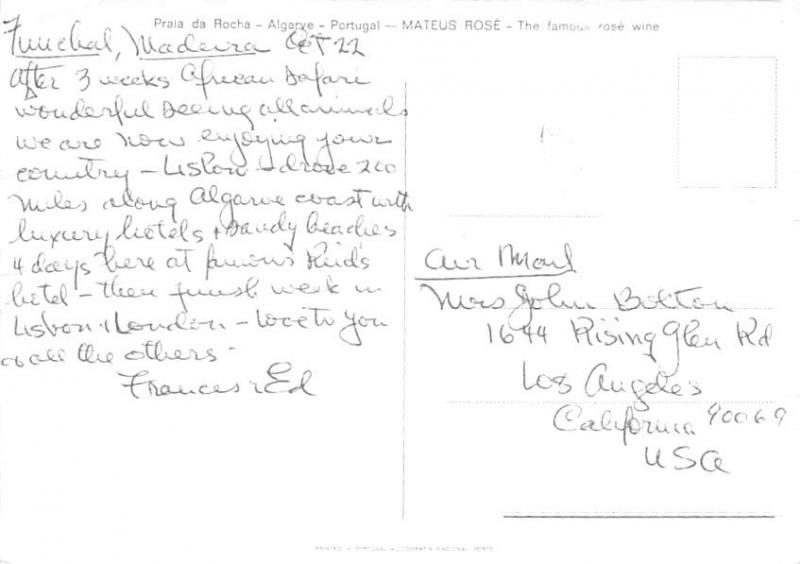 Praia da Rocha - Algarve - Portugal — MATEUS ROSÉ - The famous rosé wine
Funchal, Madeira Oct 22
After 3 weeks African Safari
wonderful seeing all animals
we are now enjoying your
country - Lisbon + drove 200
miles along Algarve coast with
luxury hotels + sandy beaches
4 days here at famous Reid's
hotel - then finish week in
Lisbon + London - Love to you
& all the others -
Frances + Ed
Air Mail
Mrs John Bolton
1644 Rising Glen Rd
Los Angeles
California 90069
USA
PRINTED IN PORTUGAL - LITOGRAFIA NACIONAL PORTO